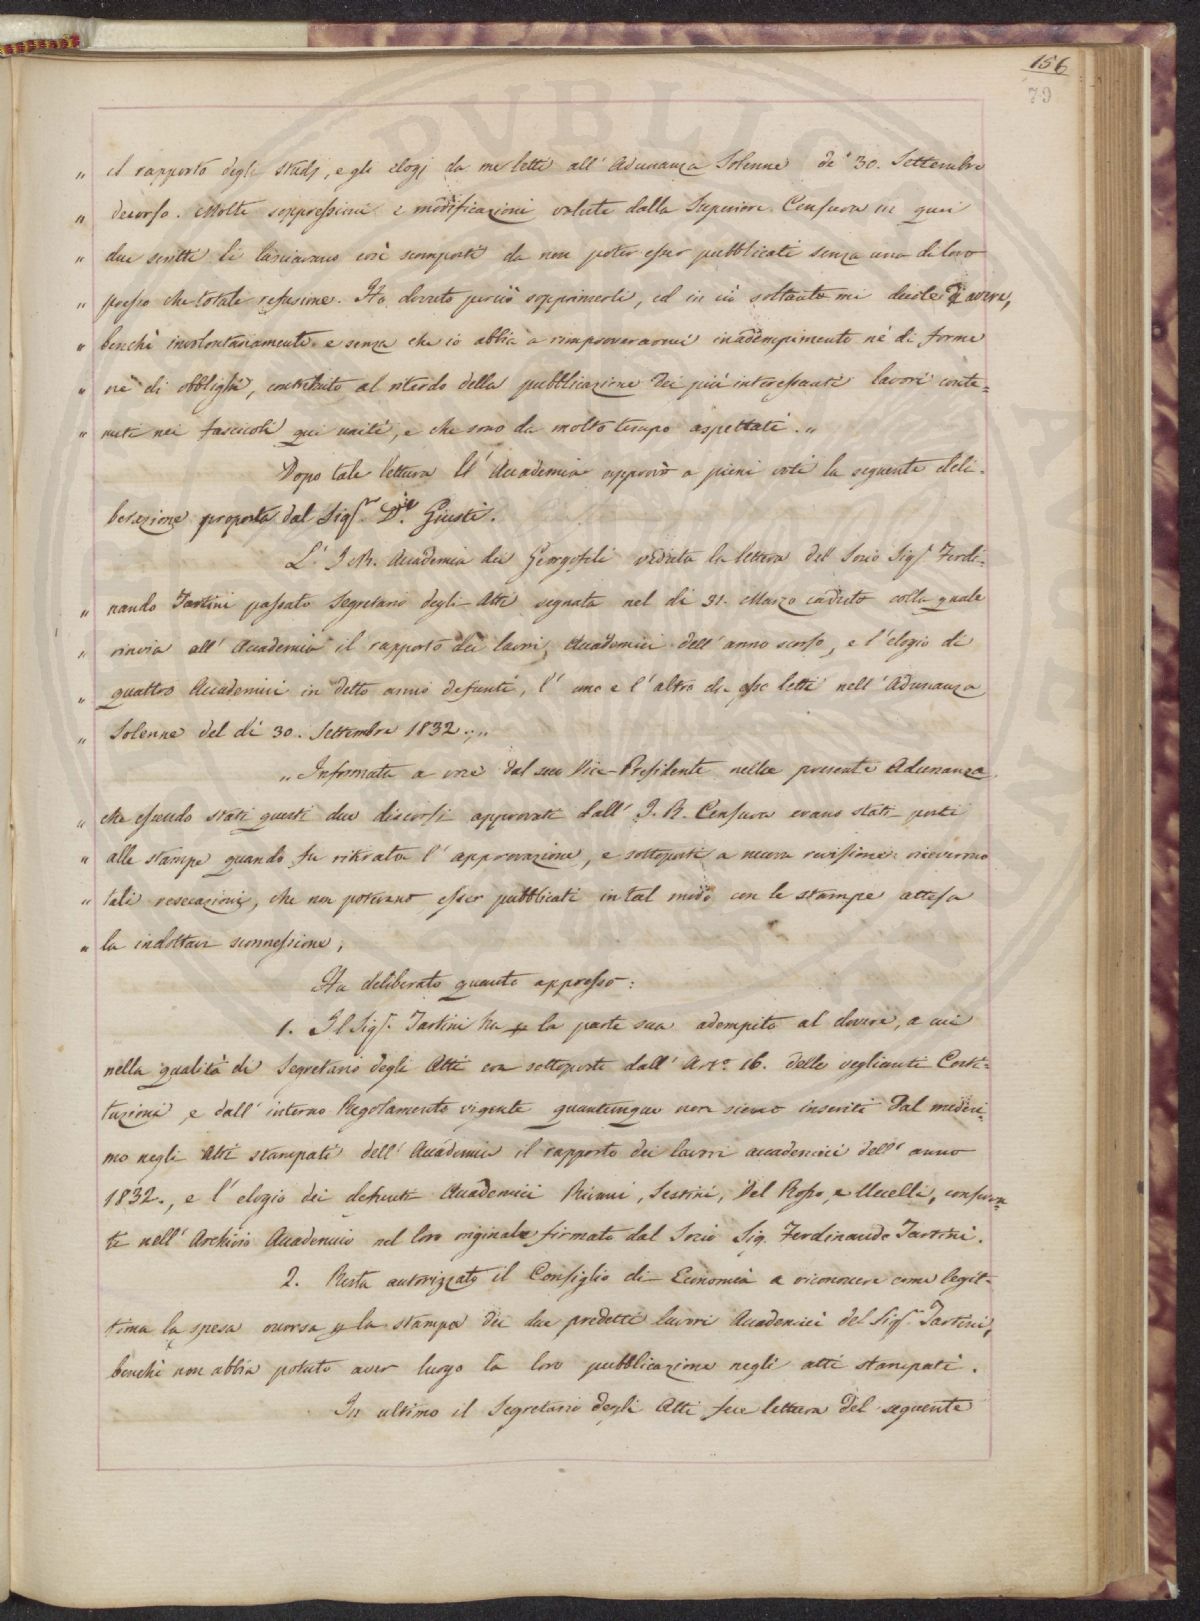 156
79
„ il rapporto degli studj, e gli elogj da me letti all' Adunanza Solenne de' 30. Settembre
„ decorso. Molte soppressioni e modificazioni volute dalla Superiore Censura in quei
„ due scritti li lasciavano così scomposti da non poter esser pubblicati senza una di loro
„ presso che totale refusione. Ho dovuto perciò sopprimerli, ed in ciò soltanto mi duole di avere,
„ benchè involontariamente e senza che io abbia a rimproverarmi inadempimento nè di forme
„ nè di obblighi, contribuito al ritardo della pubblicazione dei più interessanti lavori conte=
„ nuti nei fascicoli qui uniti, e che sono da molto tempo aspettati. „
Dopo tale lettura l' Accademia approvò a pieni voti la seguente deli-
berazione proposta dal Sigr. Dr. Giusti.
L' I. e R. Accademia dei Georgofili veduta la lettera del Socio Sigr. Ferdi-
„ nando Tartini passato Segretario degli Atti segnata nel dì 31. Marzo caduto colla quale
„ rinvia all' Accademia il rapporto dei lavori Accademici dell' anno scorso, e l' elogio di
„ quattro Accademici in detto anno defunti, l' uno e l' altro da esso letti nell' Adunanza
„ Solenne del dì 30. Settembre 1832. „
„ Informata a voce dal suo Vice-Presidente nella presente Adunanza
„ che essendo stati questi due discorsi approvati dall' I. R. Censura erano stati posti
„ alle stampe quando fu ritirata l' approvazione, e sottoposti a nuova revisione riceverono
„ tali resecazioni, che non potevano esser pubblicati in tal modo con le stampe attesa
„ la indottavi sconnessione,
Ha deliberato quanto appresso:
1. Il Sigr. Tartini ha p la parte sua adempito al dovere, a cui
nella qualità di Segretario degli Atti era sottoposto dall' Arto. 16. delle veglianti Costi-
tuzioni, e dall' interno Regolamento vigente quantunque non sieno inseriti dal medesi-
mo negli Atti stampati dell' Accademia il rapporto dei lavori accademici dell' anno
1832., e l' elogio dei defunti Accademici Rinuni, Sestini, Del Rosso, e Uccelli, conserva-
ti nell' Archivio Accademico nel loro originale firmato dal Socio Sig. Ferdinando Tartini.
2. Resta autorizzato il Consiglio di Economia a riconoscere come legit-
tima la spesa occorsa p la stampa dei due predetti lavori Accademici del Sigr. Tartini,
benchè non abbia potuto aver luogo la loro pubblicazione negli atti stampati.
In ultimo il Segretario degli Atti fece lettura del seguente